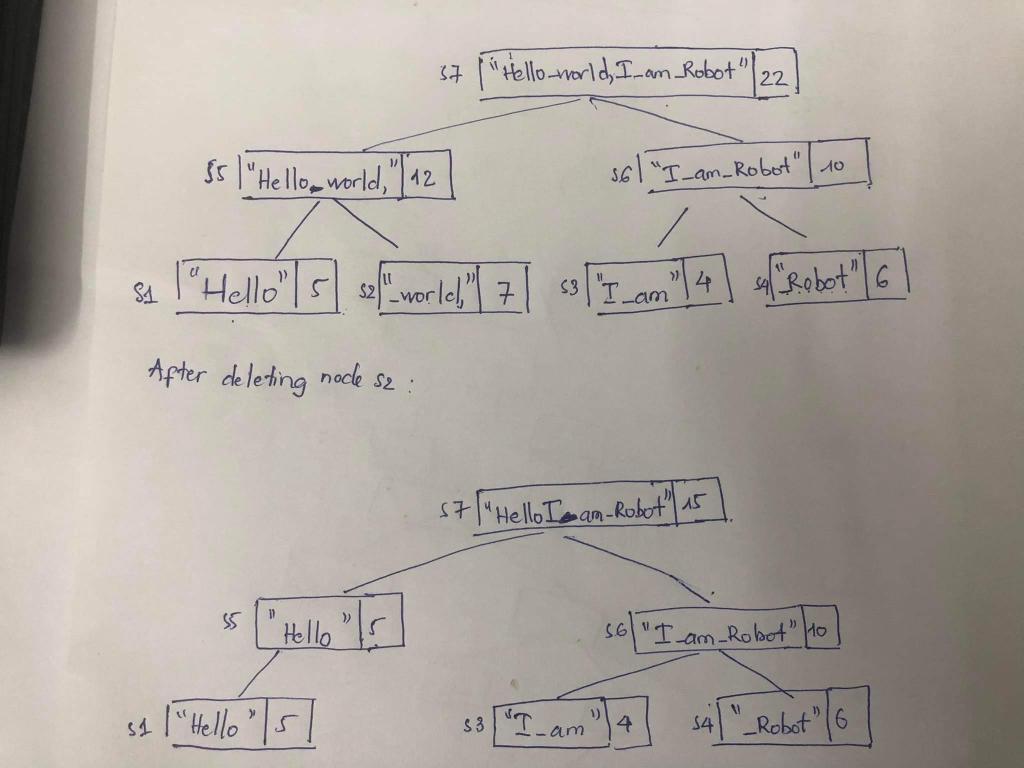 S7 "Hello_world,I_am_Robot" 22
S5 "Hello_world," 12 S6 "I_am_Robot" 10
S1 "Hello" 5 S2 "_world," 7 S3 "I_am" 4 S4 "_Robot" 6
After deleting node S2 :
S7 "HelloI_am_Robot" 15
S5 "Hello" 5 S6 "I_am_Robot" 10
S1 "Hello" 5 S3 "I_am" 4 S4 "_Robot" 6